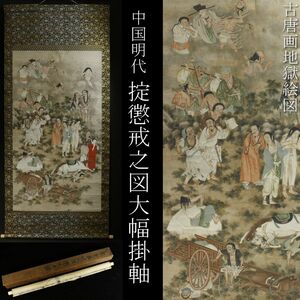 中国明代
掟懲戒之図大幅掛軸
古唐画地獄絵図